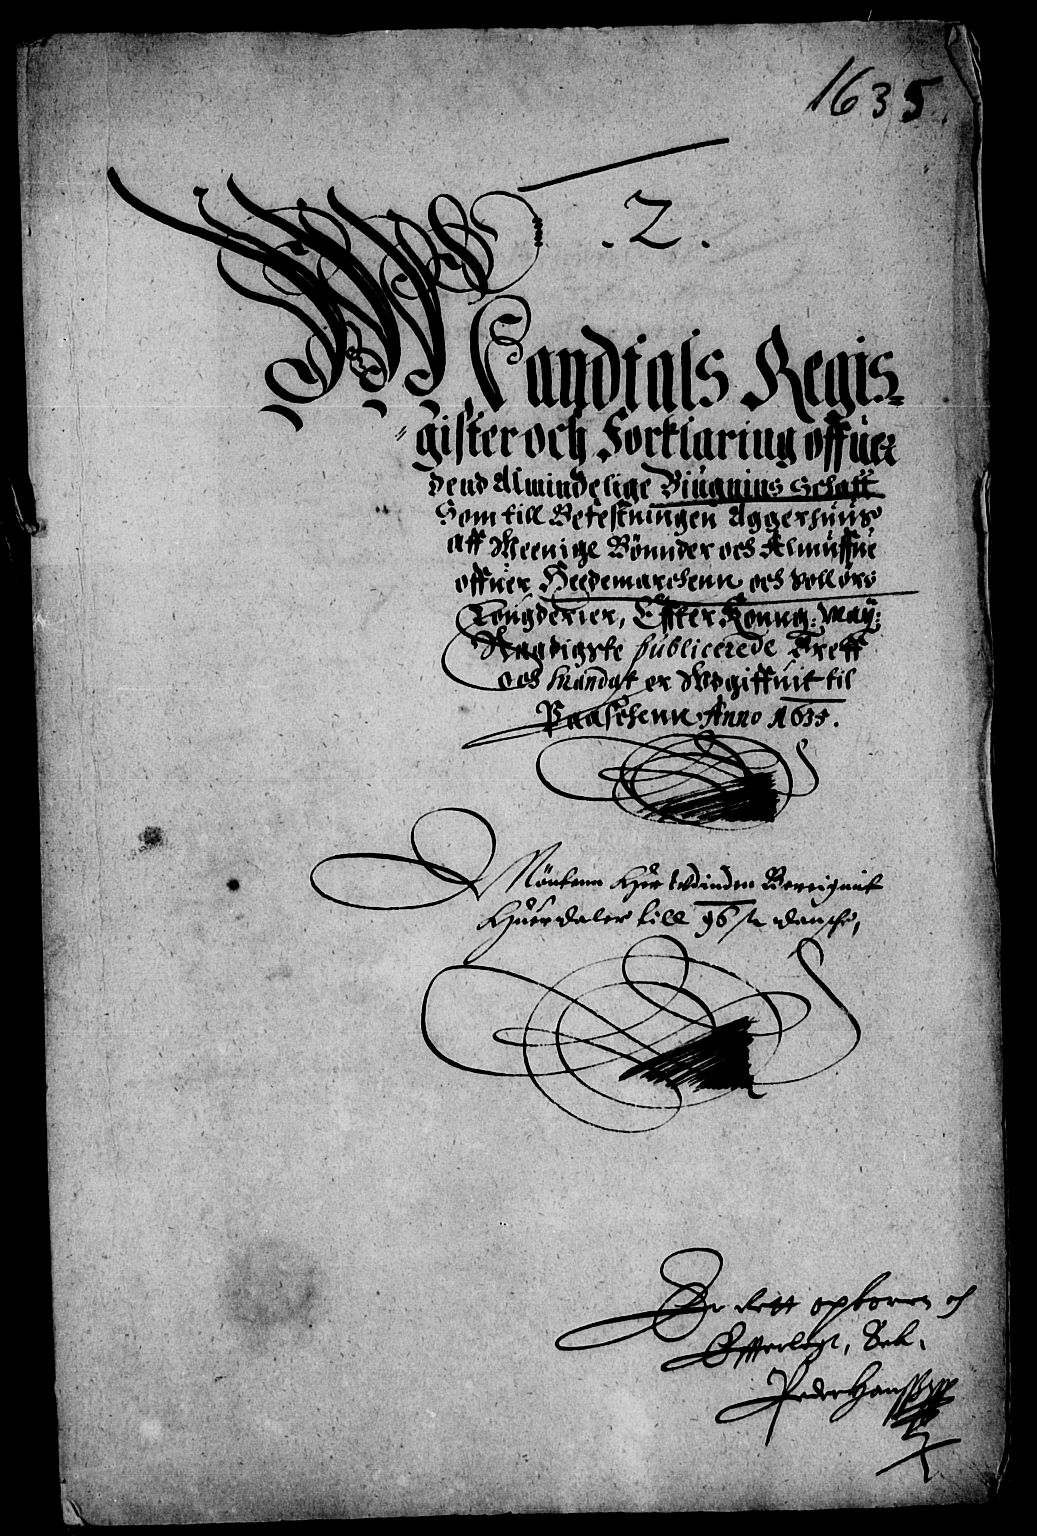 1635.
. 2 .
Mandtals Regis=
gister och Forklaring offuer
dend Almindelige Biugnins Schatt
Som till Befestningen Aggershuus
aff Meenige Bønnder och Almuffue
offuer Heedemarchenn och
Fougderier, Effter Konng: May:
Naadigste publicerede Breff
och Mandat er Udgiffuit til
Paaschenn Anno 1635.
Mønten Her Udinden Bereignit
Huer daler till 96 sk danske,
Er dett opboren och
Effter
Peder Hanss